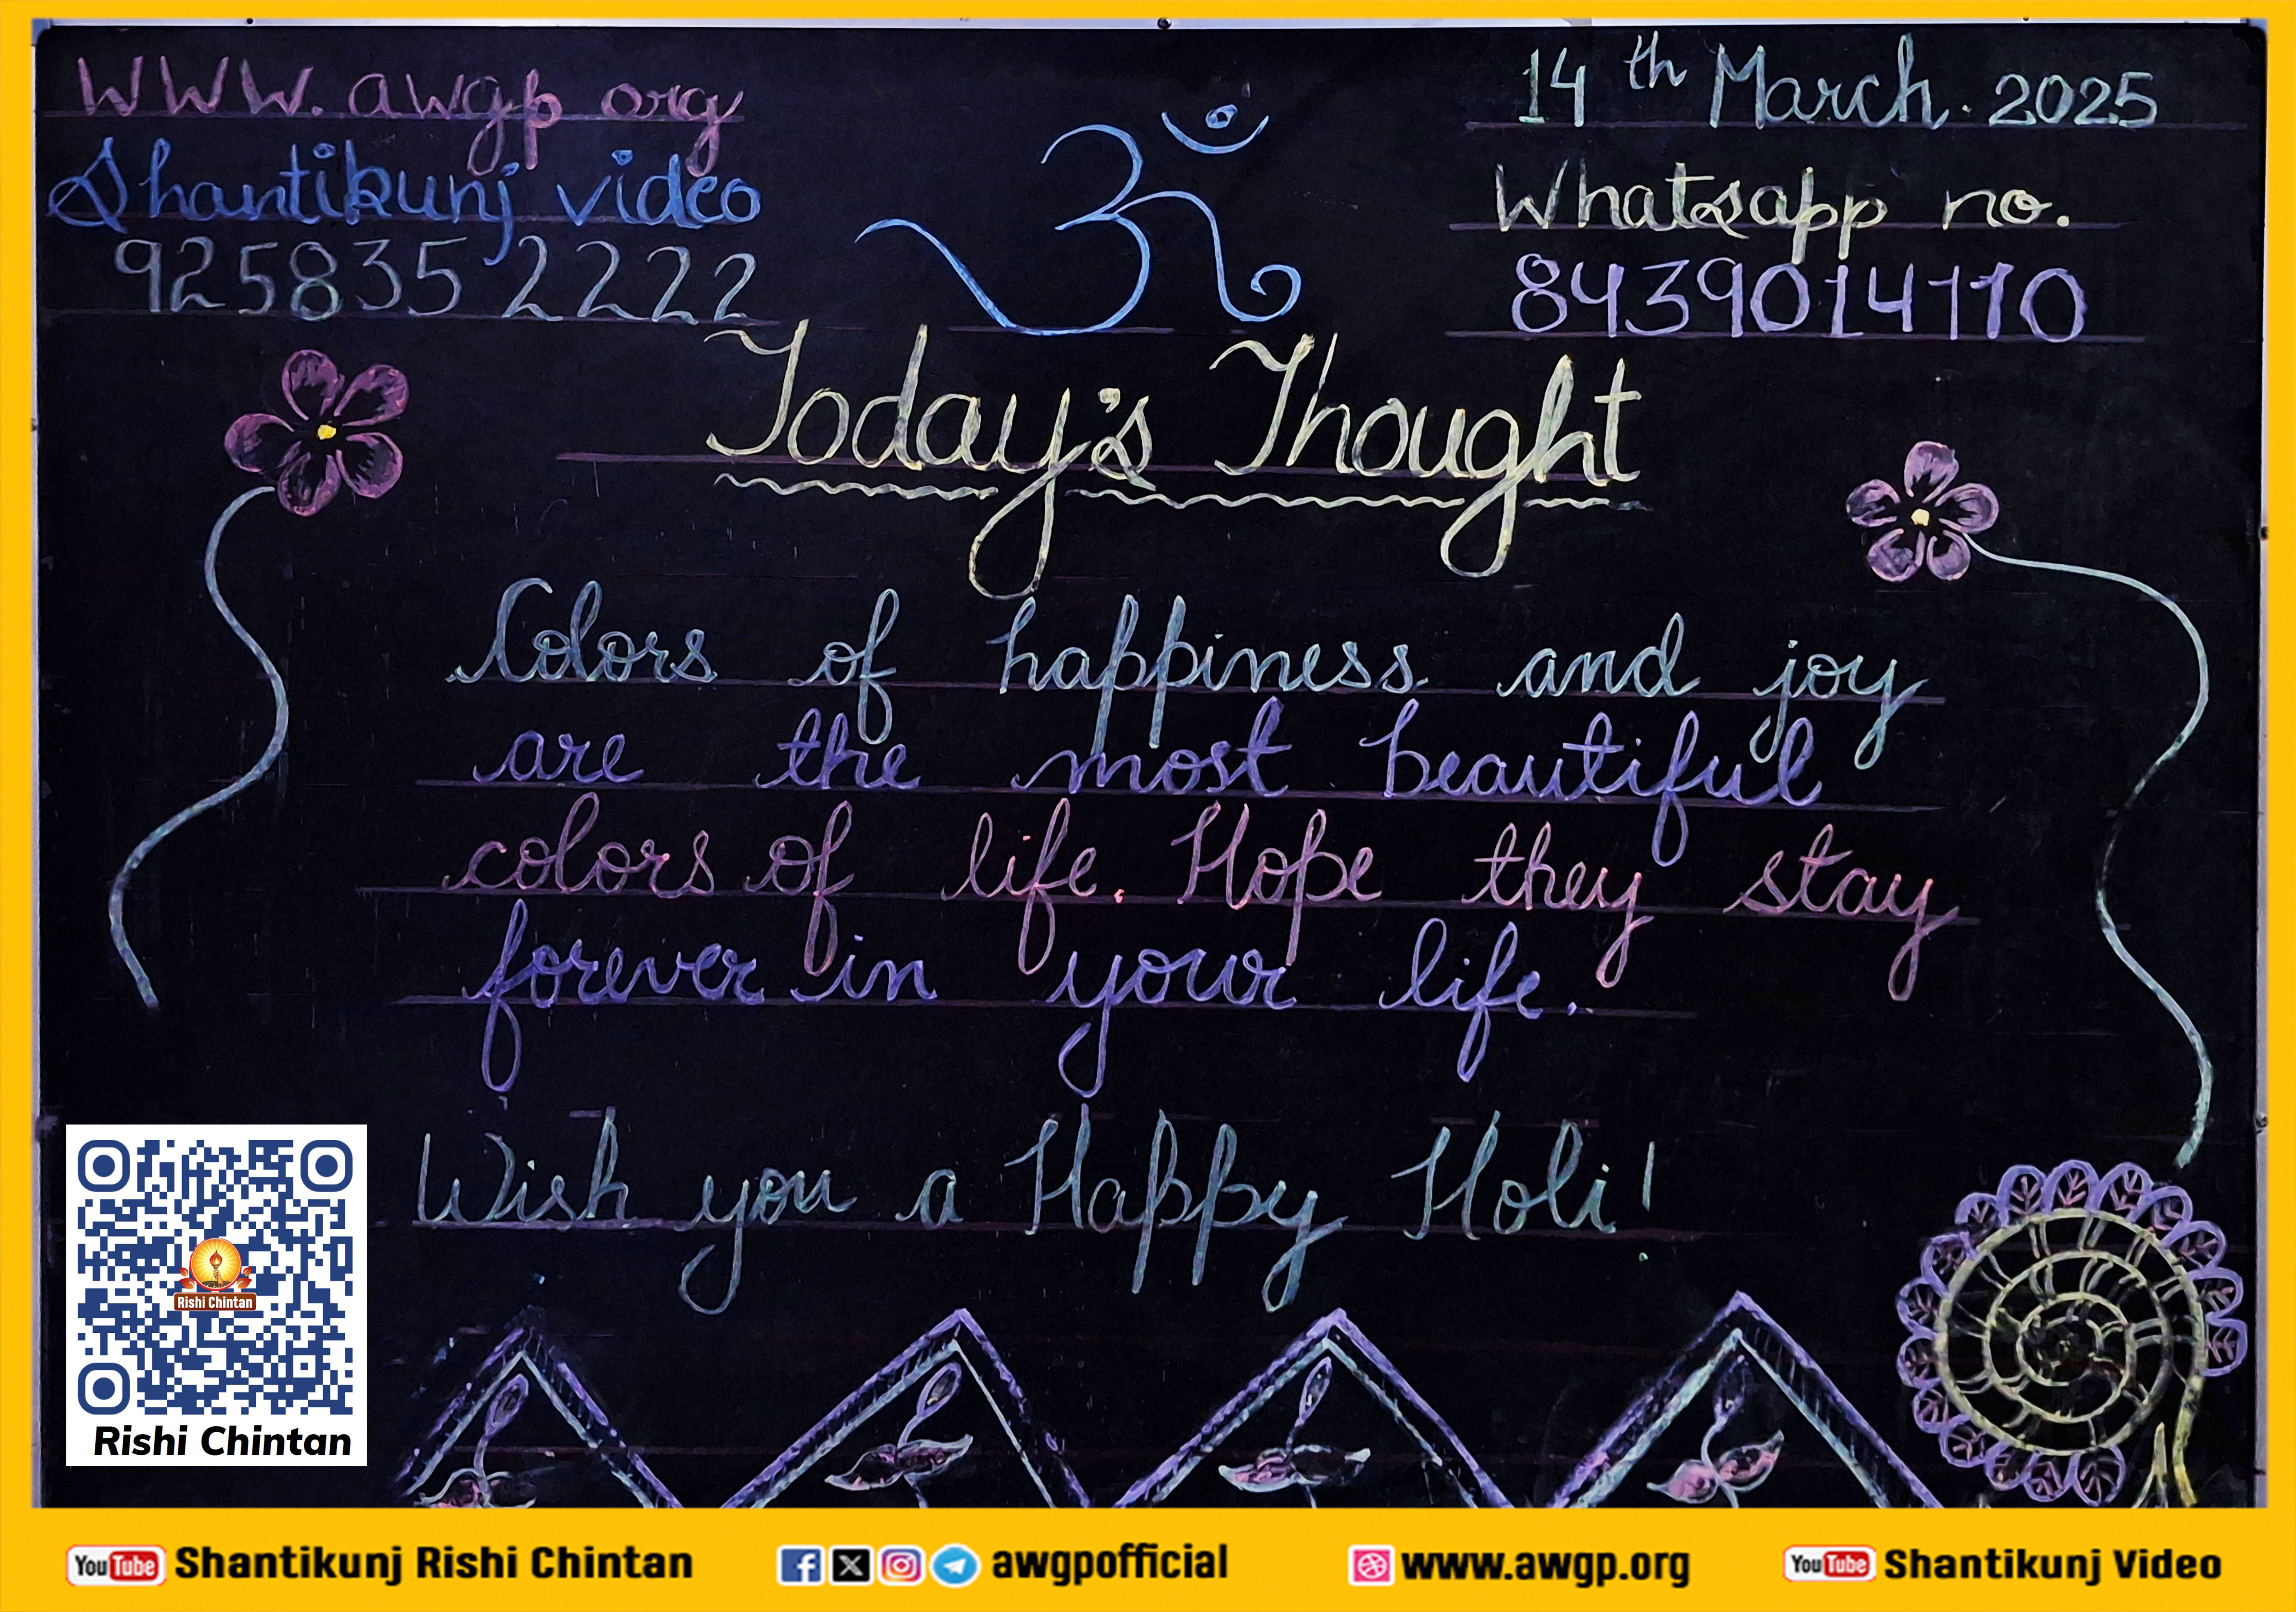 WWW.awgp org
Shantikunj video
9258352222
14th March 2025
Whatsapp no.
8439014110
ॐ
Today's Thought
Colors of happiness and joy
are the most beautiful
colors of life. Hope they stay
forever in your life.
Wish you a Happy Holi!
Rishi Chintan
Rishi Chintan
YouTube Shantikunj Rishi Chintan
awgpofficial
www.awgp.org
YouTube Shantikunj Video